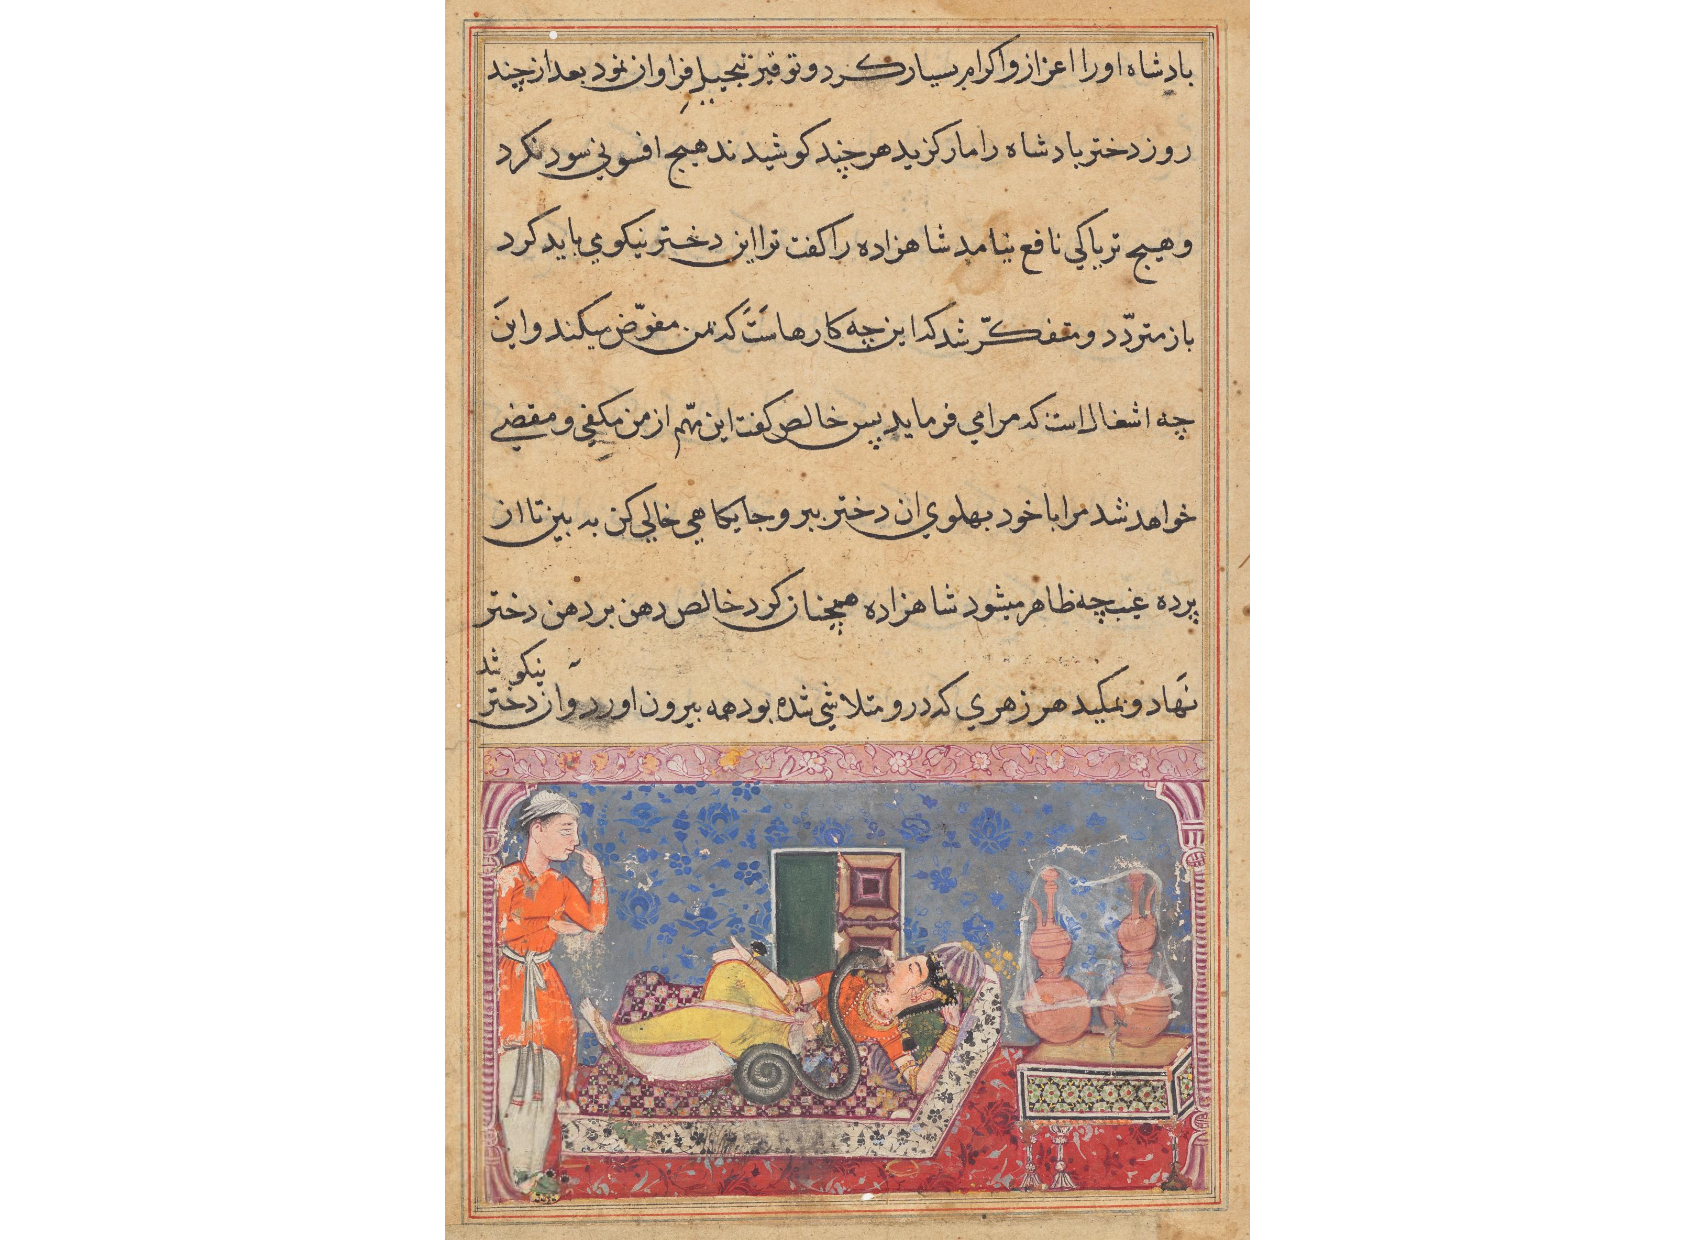 بادشاه اورا اعزاز و اکرام بسیار کرد و توقیر و تبجیل فراوان نمود بعد از چند
روز دختر بادشاه را مار کزید هر چند کوشیدند هیچ افسونی سود نکرد
و هیچ تریاکی نافع نیامد شاهزاده را کفت ترا این دختر نیکو می باید کرد
باز متردّد و متفکّر شد که این چه کارهاست که بمن مفوّض میکند و این
چه اشغال است که مرا می فرماید پس خالص کفت این مهّم از من مکفی و مقضی
خواهد شد مرا با خود بهلوی ان دختر ببر و جایکاهی خالی کن به بین تا از
پرده غیب چه ظاهر میشود شاهزاده همچنان کرد خالص دهن بر دهن دختر
نهاد و بمکید هر زهری که درو متلاشی شده بود همه بیرون اورد و آن دختر
نیکو شد